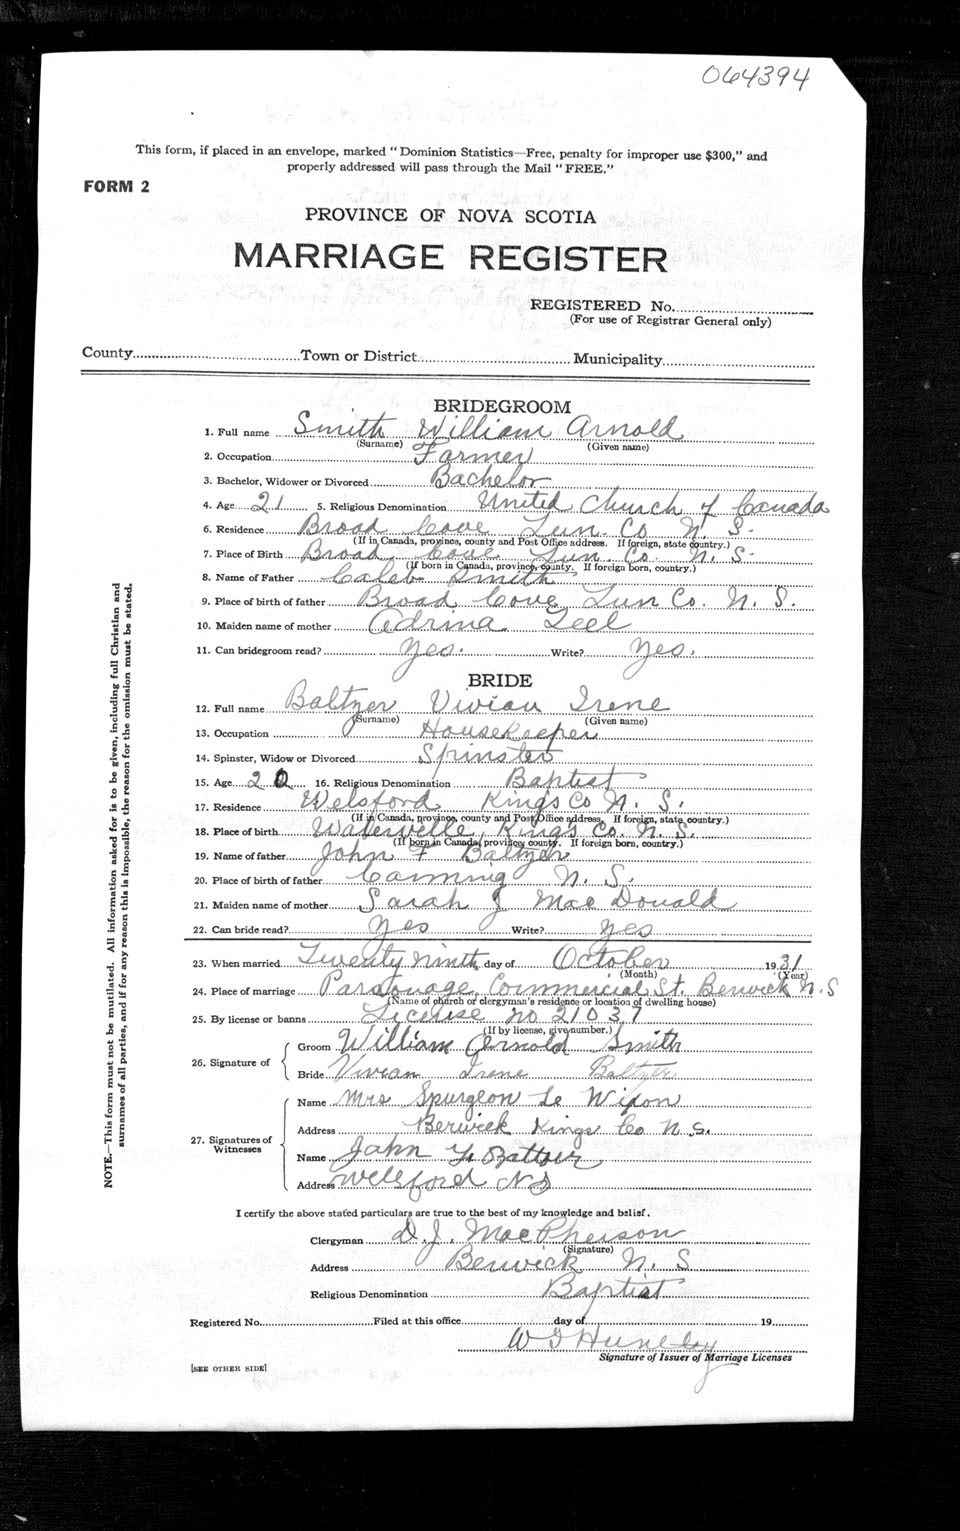 064394
This form, if placed in an envelope, marked "Dominion Statistics—Free, penalty for improper use $300," and
properly addressed will pass through the Mail "FREE."
FORM 2
PROVINCE OF NOVA SCOTIA
MARRIAGE REGISTER
REGISTERED No.
(For use of Registrar General only)
County Town or District Municipality
BRIDEGROOM
1. Full name Smith William Arnold
(Surname) (Given name)
2. Occupation Farmer
3. Bachelor, Widower or Divorced Bachelor
4. Age 21 5. Religious Denomination United Church of Canada
6. Residence Broad Cove Lun. Co. N. S.
(If in Canada, province, county and Post Office address. If foreign, state country.)
7. Place of Birth Broad Cove Lun. Co. N. S.
(If born in Canada, province, county. If foreign born, country.)
8. Name of Father Caleb Smith
9. Place of birth of father Broad Cove Lun Co. N. S.
10. Maiden name of mother Adrina Teel
11. Can bridegroom read? Yes. Write? Yes.
BRIDE
12. Full name Baltzer Vivian Irene
(Surname) (Given name)
13. Occupation Housekeeper
14. Spinster, Widow or Divorced Spinster
15. Age 20 16. Religious Denomination Baptist
17. Residence Welsford Kings Co N. S.
(If in Canada, province, county and Post Office address. If foreign, state country.)
18. Place of birth Waterville, Kings Co. N. S.
(If born in Canada, province, county. If foreign born, country.)
19. Name of father John F Baltzer
20. Place of birth of father Canning N. S.
21. Maiden name of mother Sarah J MacDonald
22. Can bride read? Yes Write? Yes
23. When married Twenty Ninth day of October 1931
(Month) (Year)
24. Place of marriage Parsonage, Commercial St. Berwick N. S
(Name of church or clergyman's residence or location of dwelling house)
25. By license or banns License no 21037
(If by license, give number.)
26. Signature of Groom William Arnold Smith
Bride Vivian Irene Baltzer
27. Signatures of Witnesses Name Mrs Spurgeon Le Wixon
Address Berwick Kings Co N. S.
Name John F Baltzer
Address Welsford NS
I certify the above stated particulars are true to the best of my knowledge and belief.
Clergyman D. J. MacPherson
(Signature)
Address Berwick N. S
Religious Denomination Baptist
Registered No. Filed at this office day of 19
W Huntley
Signature of Issuer of Marriage Licenses
[SEE OTHER SIDE]
NOTE.—This form must not be mutilated. All information asked for is to be given, including full Christian and
surnames of all parties, and if for any reason this is impossible, the reason for the omission must be stated.